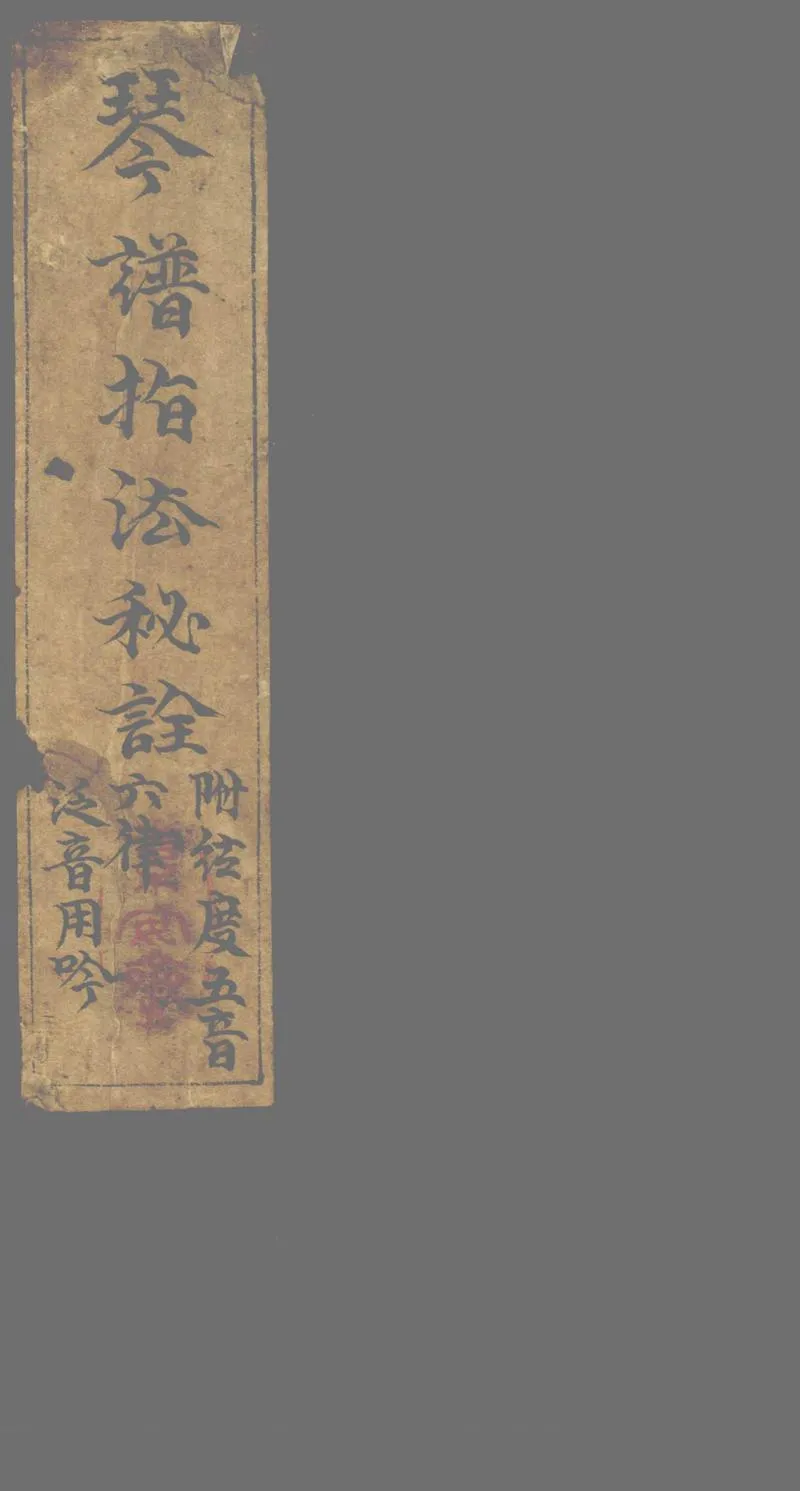 琴譜指法秘詮
附結度五音
六律
泛音用吟